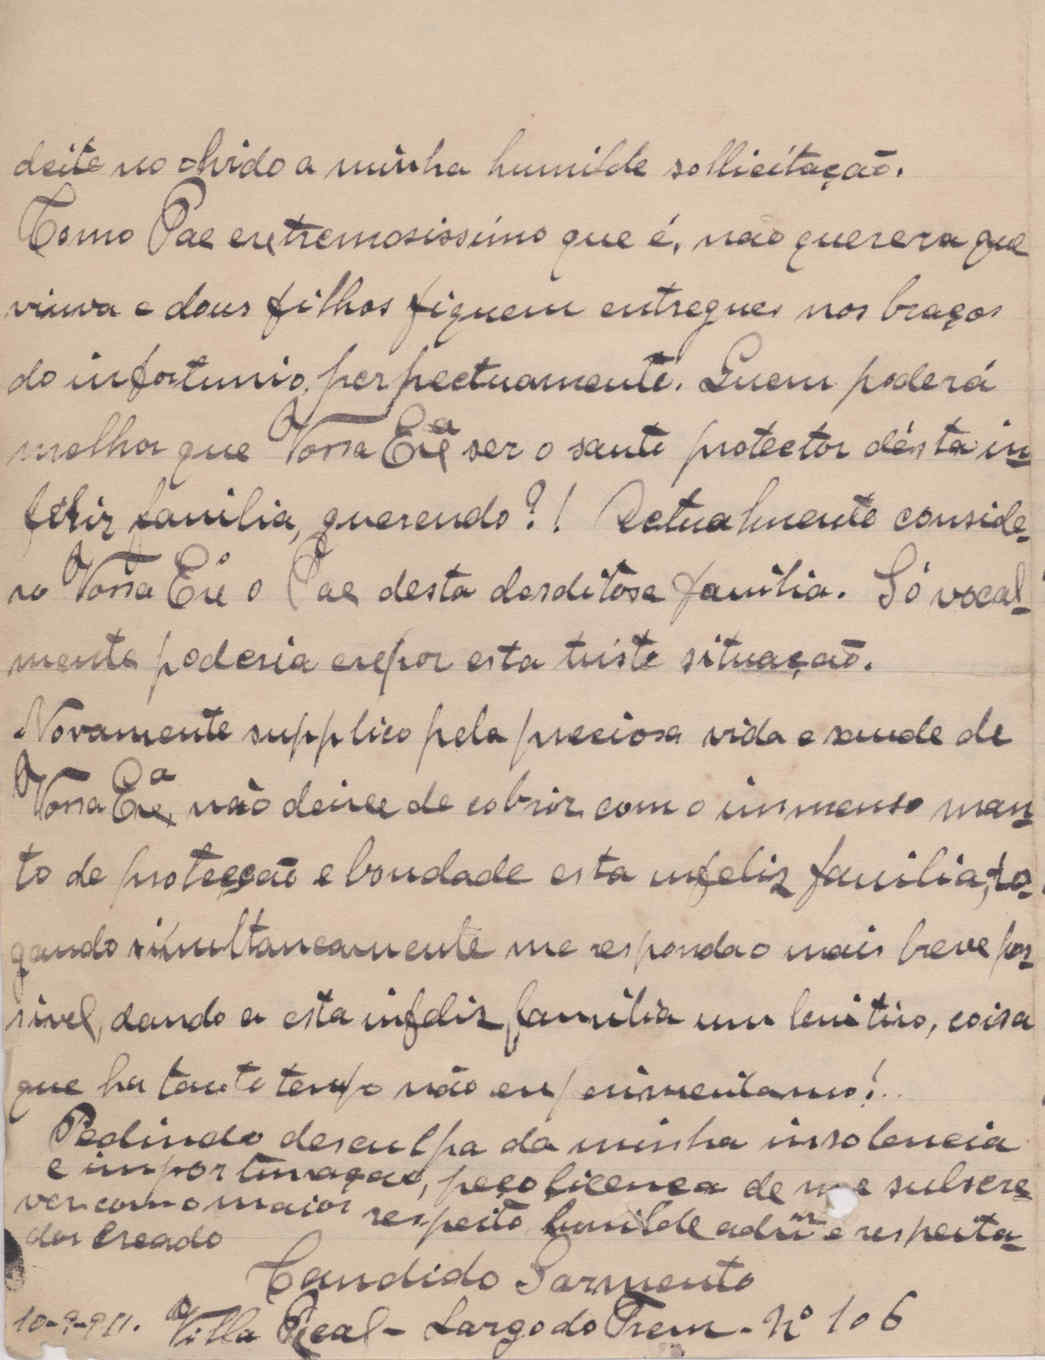 deite no olvido a minha humilde sollicitação.
Como Pae extremosissimo que é, não quererá que
viuva e dous filhos fiquem entregues nos braços
do infortunio, perpectuamente. Quem poderá
melhor que Vossa Exª ser o santo protector désta in-
feliz familia, querendo?! Actualmente conside-
ro Vossa Exª o Pae desta desditosa familia. Só vocal-
mente poderia expor esta triste situação.
Novamente supplico pela preciosa vida e saude de
Vossa Exª, não deixe de cobrir com o immenso man-
to de protecção e bondade esta infeliz familia, ro-
gando simultaneamente me responda o mais breve pos-
sivel, dando a esta infeliz familia um lenitivo, coisa
que ha tanto tempo não experimentamos!..
Pedindo desculpa da minha insolencia
e importunação, peço licença de me subscre-
ver com o maior respeito humilde admor e respeita-
dor creado
Candido Sarmento
10-9-911. Villa Real - Largo do Trem - Nº 106